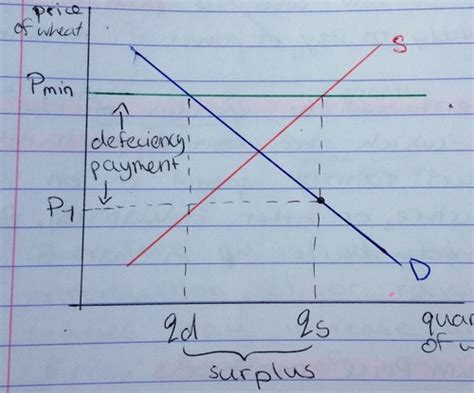 price
of wheat
S
Pmin
defeciency
payment
P1
D
qd
qs
quan
of w
surplus